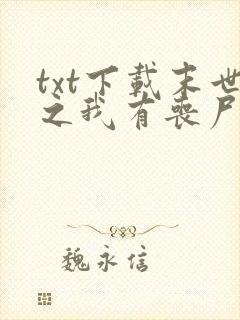 txt下载末世
之我有丧尸
魏永信